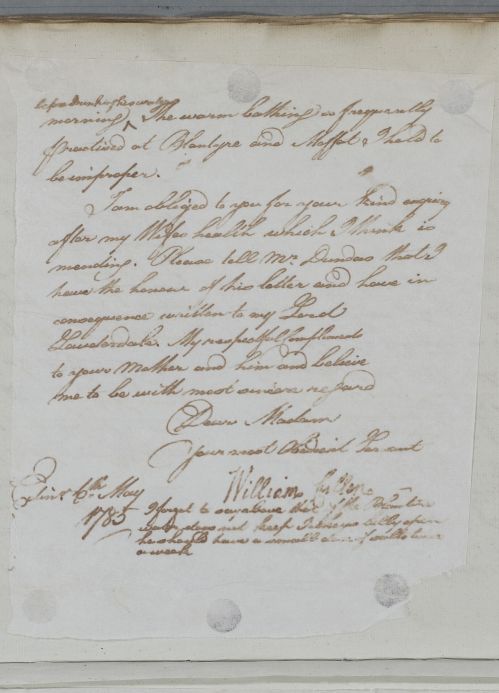 before drinking the water
morning ^ The warm bathing as frequently
practised at Blantyre and Moffat I hold to
be improper.
I am obliged to you for your kind enquiry
after my Wifes health which I think is
mending. Please tell Mr. Dundas that I
have the honour of his letter and have in
consequence written to my Lord
Lauderdale. My respectful Compliments
to your Mother and him and believe
me to be with most sincere regard
Dear Madam
Your most Obedient Servant
William Cullen
Edinr. 6th May
1785
I forgot to say above that if the
water does not keep belly open
he should have a small dose of salts twice
a week